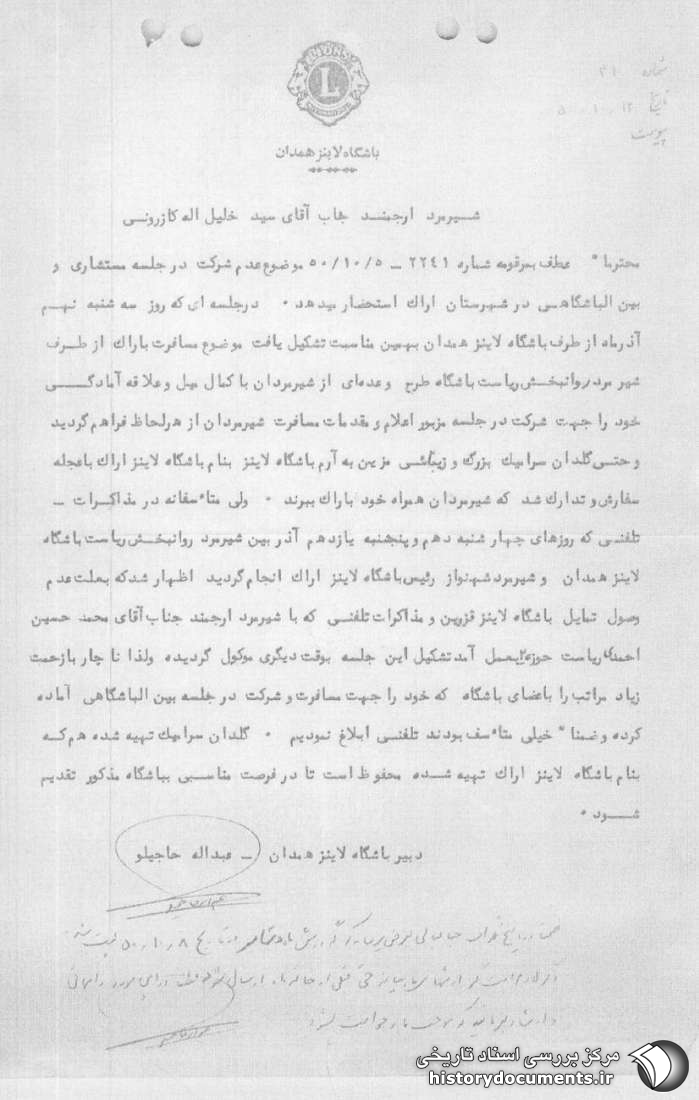 شماره ۳۱
تاریخ ۱۲ ۱۰ ۵۰
پیوست
LIONS
L
INTERNATIONAL
باشگاه لاینز همدان
شیرمرد ارجمند جناب آقای سید خلیل اله کازرونی
محترما" عطف بمرقومه شماره ۲۲۴۱ – ۵۰/۱۰/۵ موضوع عدم شرکت در جلسه مستشاری و
بین الباشگاهی در شهرستان اراک استحضار میدهد ۰ درجلسه ای که روز سه شنبه نهم
آذرماه از طرف باشگاه لاینز همدان بهمین مناسبت تشکیل یافت موضوع مسافرت باراک از طرف
شیر مرد روانبخش ریاست باشگاه طرح وعده‌ای از شیرمردان با کمال میل و علاقه آمادگی
خود را جهت شرکت در جلسه مزبور اعلام و مقدمات مسافرت شیرمردان از هرلحاظ فراهم گردید
و حتی گلدان سرامیک بزرگ و زیبائی مزین به آرم باشگاه لاینز بنام باشگاه لاینز اراک باعجله
سفارش و تدارک شد که شیرمردان همراه خود باراک ببرند ۰ ولی متأسفانه در مذاکرات –
تلفنی که روزهای چهار شنبه دهم و پنجشنبه یازدهم آذر بین شیرمرد روانبخش ریاست باشگاه
لاینز همدان و شیرمرد شهنواز رئیس باشگاه لاینز اراک انجام گردید اظهار شد که بعلت عدم
وصول تمایل باشگاه لاینز قزوین و مذاکرات تلفنی که با شیرمرد ارجمند جناب آقای محمد حسین
احمدی ریاست حوزه ۲ بعمل آمد تشکیل این جلسه بوقت دیگری موکول گردیده ولذا نا چار بازحمت
زیاد مراتب را باعضای باشگاه که خود را جهت مسافرت و شرکت در جلسه بین الباشگاهی آماده
کرده و ضمنا" خیلی متأسف بودند تلفنی ابلاغ نمودیم ۰ گلدان سرامیک تهیه شده هم که
بنام باشگاه لاینز اراک تهیه شده محفوظ است تا در فرصت مناسبی بباشگاه مذکور تقدیم
شود ۰
دبیر باشگاه لاینز همدان – عبداله حاجیلو
مرکز بررسی اسناد تاریخی
historydocuments.ir